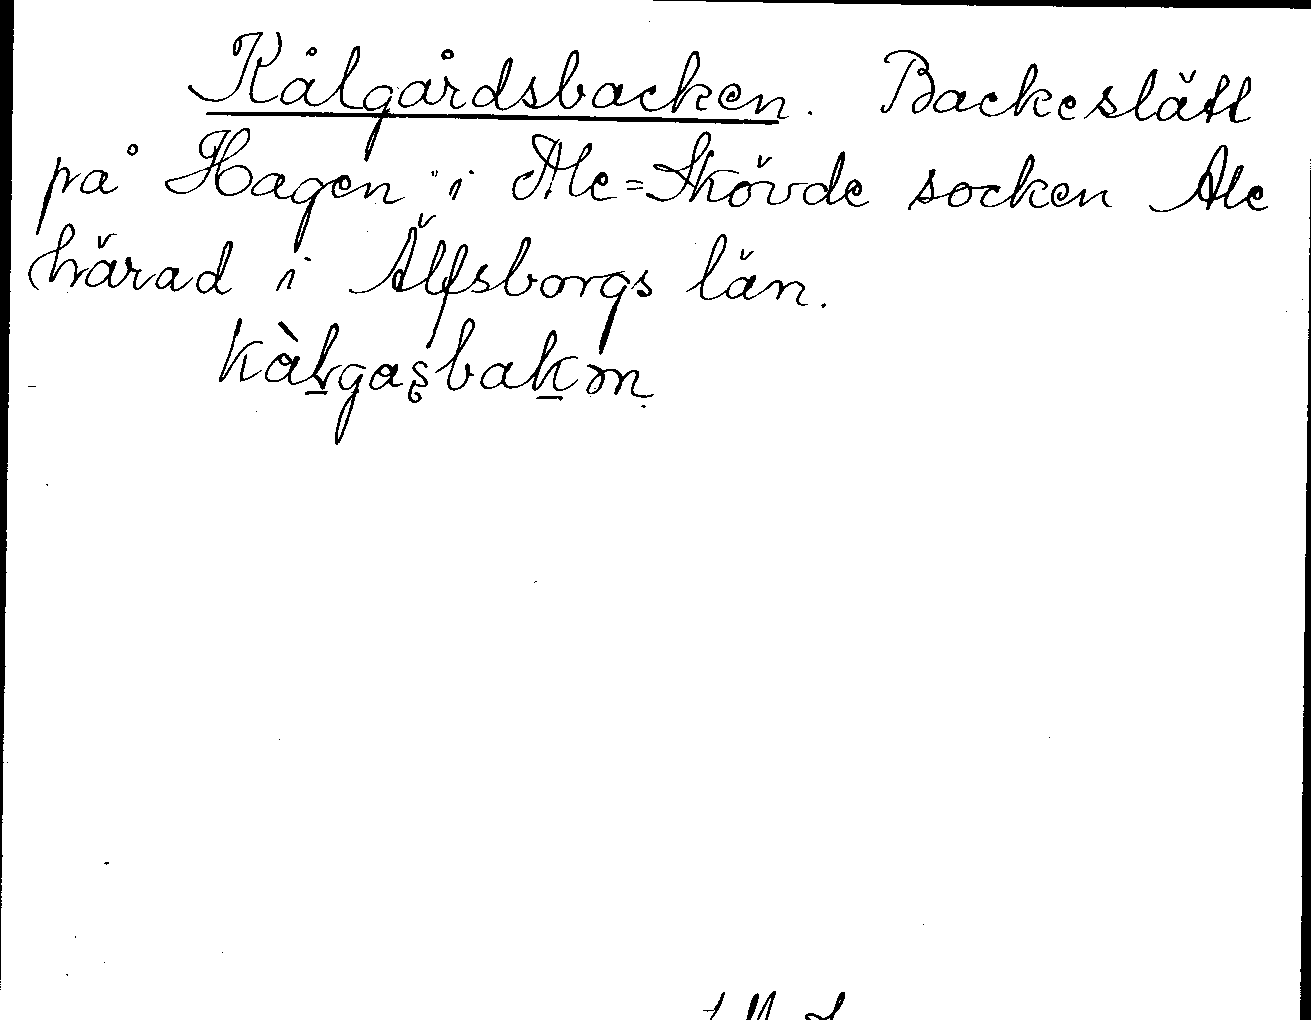 Kålgårdsbacken. Backeslätt
på Hagen i Ale=Skövde socken Ale
härad i Älfsborgs län.
kàlgasbakm